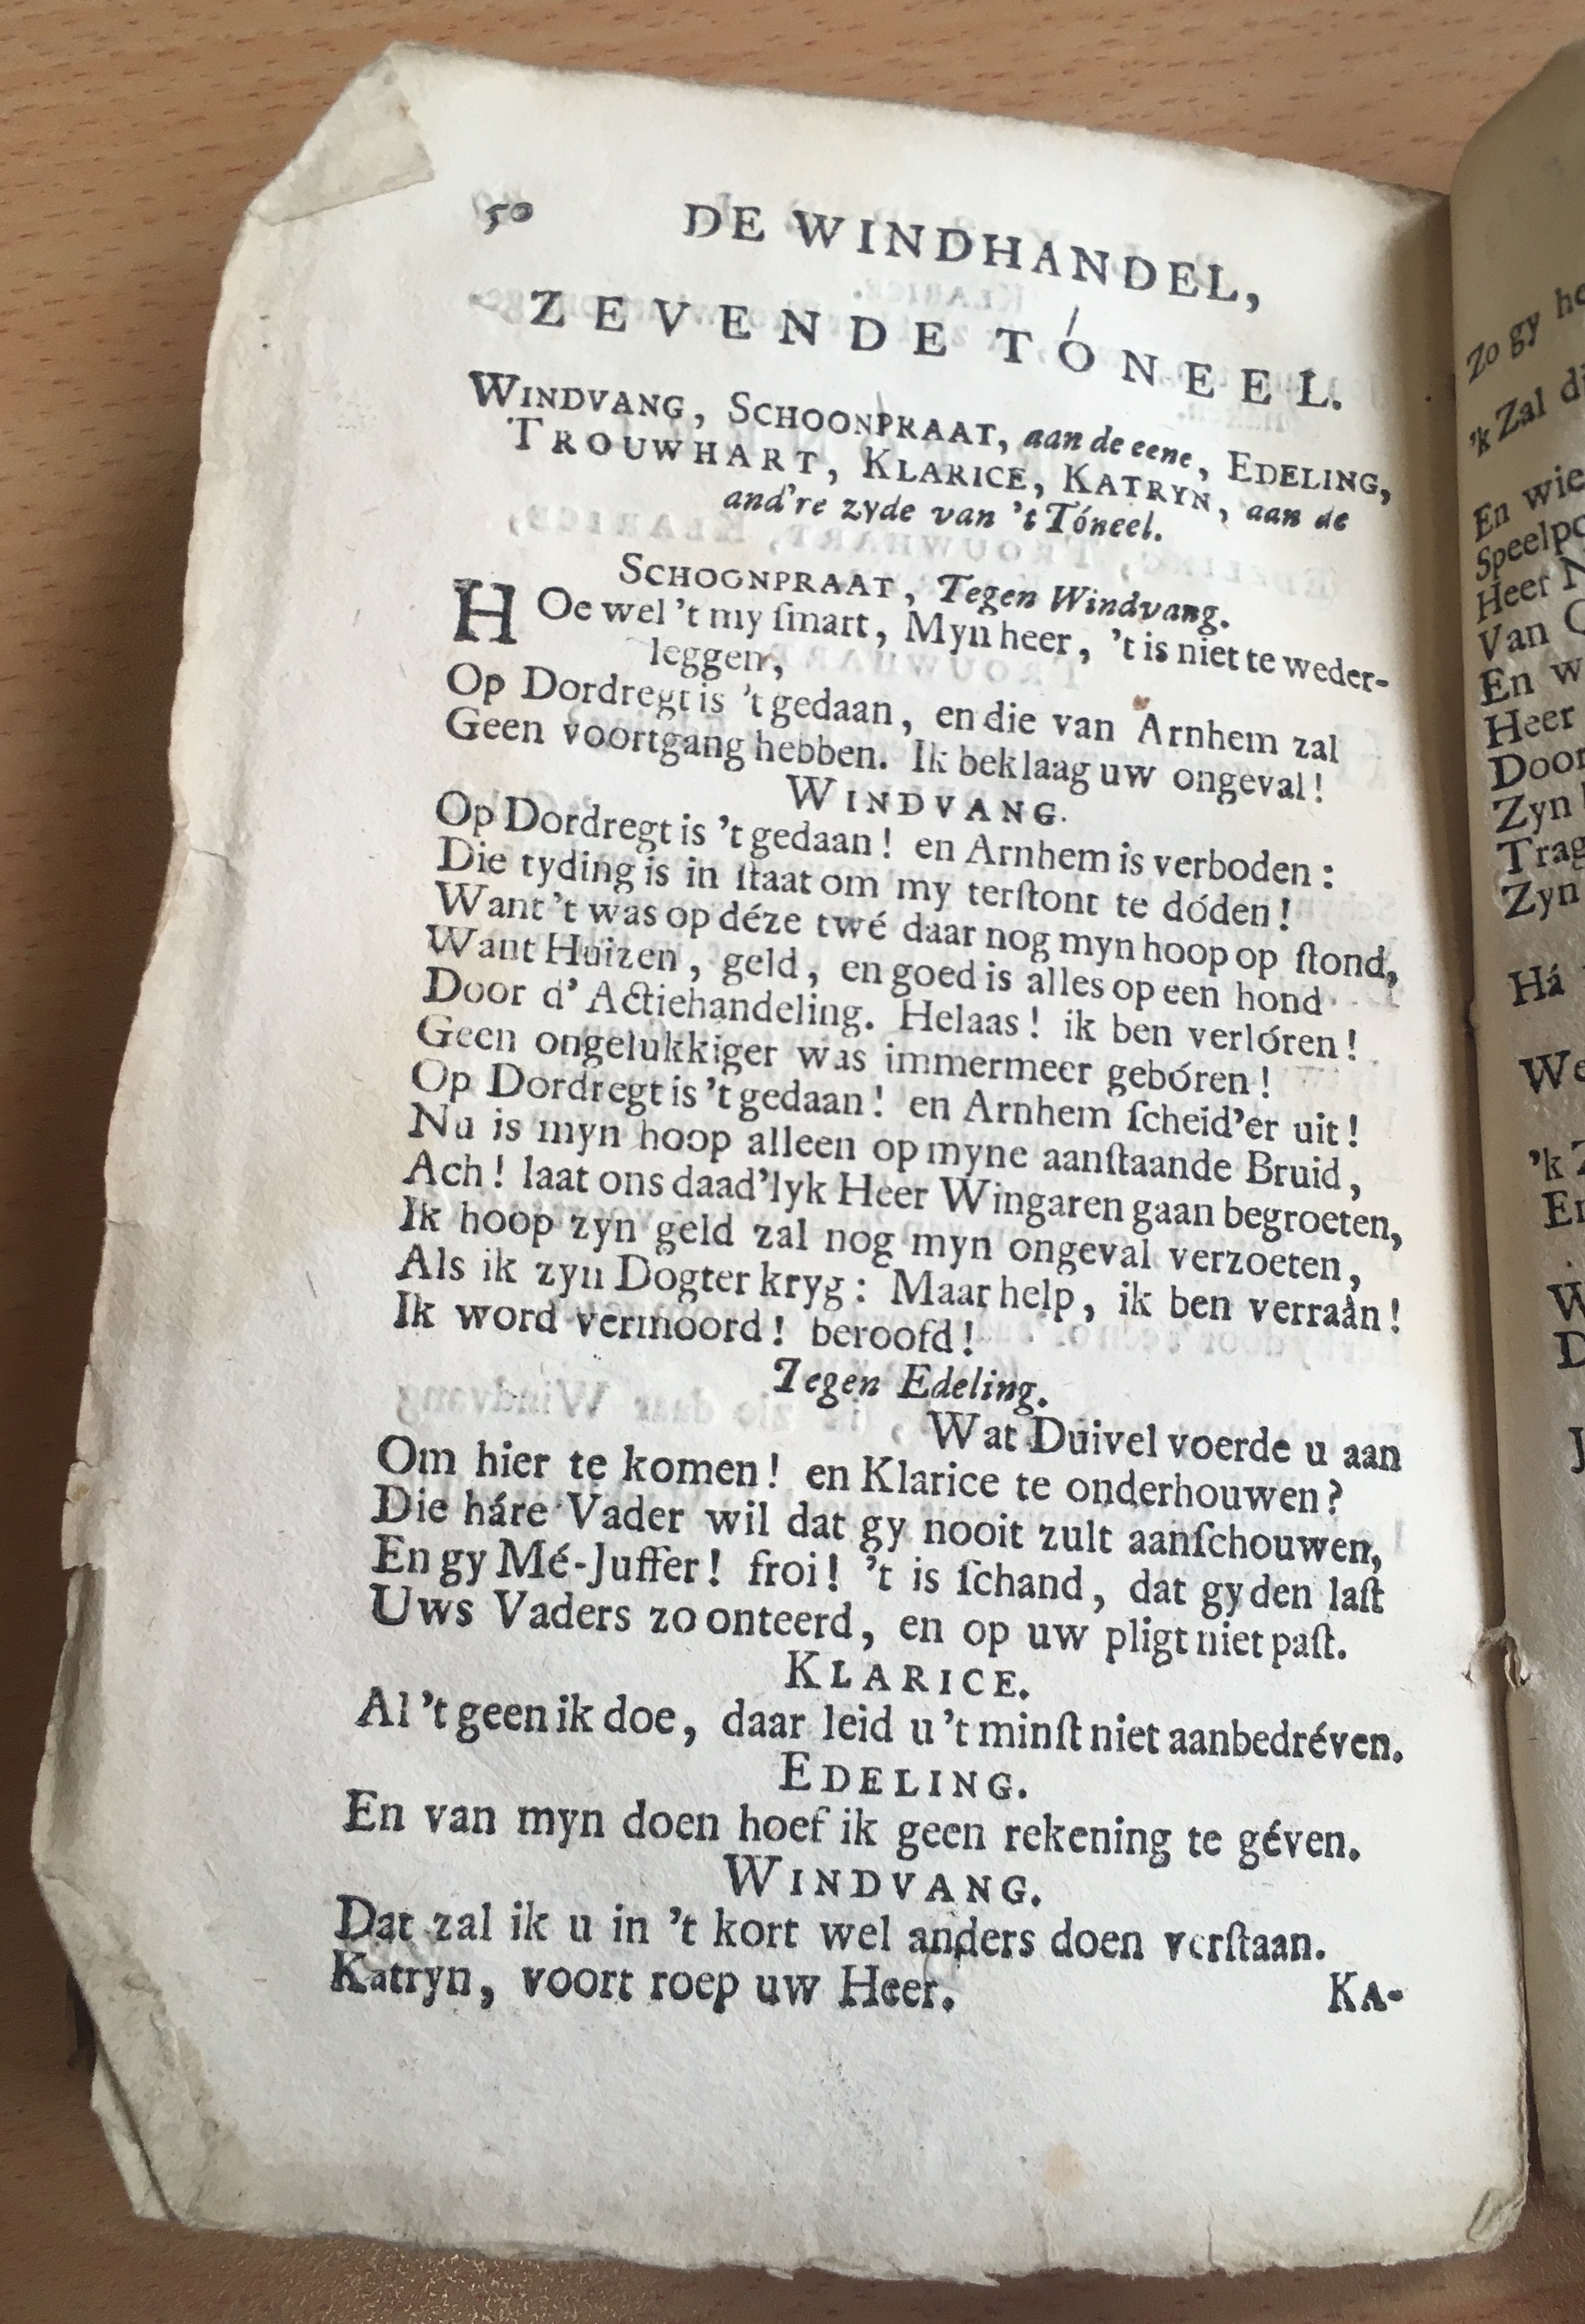 50 DE WINDHANDEL,
ZEVENDE TÓNEEL.
WINDVANG, SCHOONPRAAT, aan de eene, EDELING,
TROUWHART, KLARICE, KATRYN, aan de
and're zyde van 't Tóneel.
SCHOONPRAAT, Tegen Windvang.
HOe wel 't my ſmart, Myn heer, 't is niet te weder-
leggen,
Op Dordregt is 't gedaan, en die van Arnhem zal
Geen voortgang hebben. Ik beklaag uw ongeval!
WINDVANG.
Op Dordregt is 't gedaan! en Arnhem is verboden:
Die tyding is in ſtaat om my terſtont te dóden!
Want 't was op déze twé daar nog myn hoop op ſtond,
Want Huizen, geld, en goed is alles op een hond
Door d' Actiehandeling. Helaas! ik ben verlóren!
Geen ongelukkiger was immermeer gebóren!
Op Dordregt is 't gedaan! en Arnhem ſcheid'er uit!
Nu is myn hoop alleen op myne aanſtaande Bruid,
Ach! laat ons daad'lyk Heer Wingaren gaan begroeten,
Ik hoop zyn geld zal nog myn ongeval verzoeten,
Als ik zyn Dogter kryg: Maar help, ik ben verraân!
Ik word vermoord! beroofd!
Tegen Edeling.
Wat Duivel voerde u aan
Om hier te komen! en Klarice te onderhouwen?
Die háre Vader wil dat gy nooit zult aanſchouwen,
En gy Mé-Juffer! froi! 't is ſchand, dat gy den laſt
Uws Vaders zo onteerd, en op uw pligt niet paſt.
KLARICE.
Al 't geen ik doe, daar leid u 't minſt niet aanbedréven.
EDELING.
En van myn doen hoef ik geen rekening te géven.
WINDVANG.
Dat zal ik u in 't kort wel anders doen verſtaan.
Katryn, voort roep uw Heer.
KA-
Zo gy
'k Zal
En wie
Heer
Van
En
Heer
Door
Zyn
Zyn
Há
'k